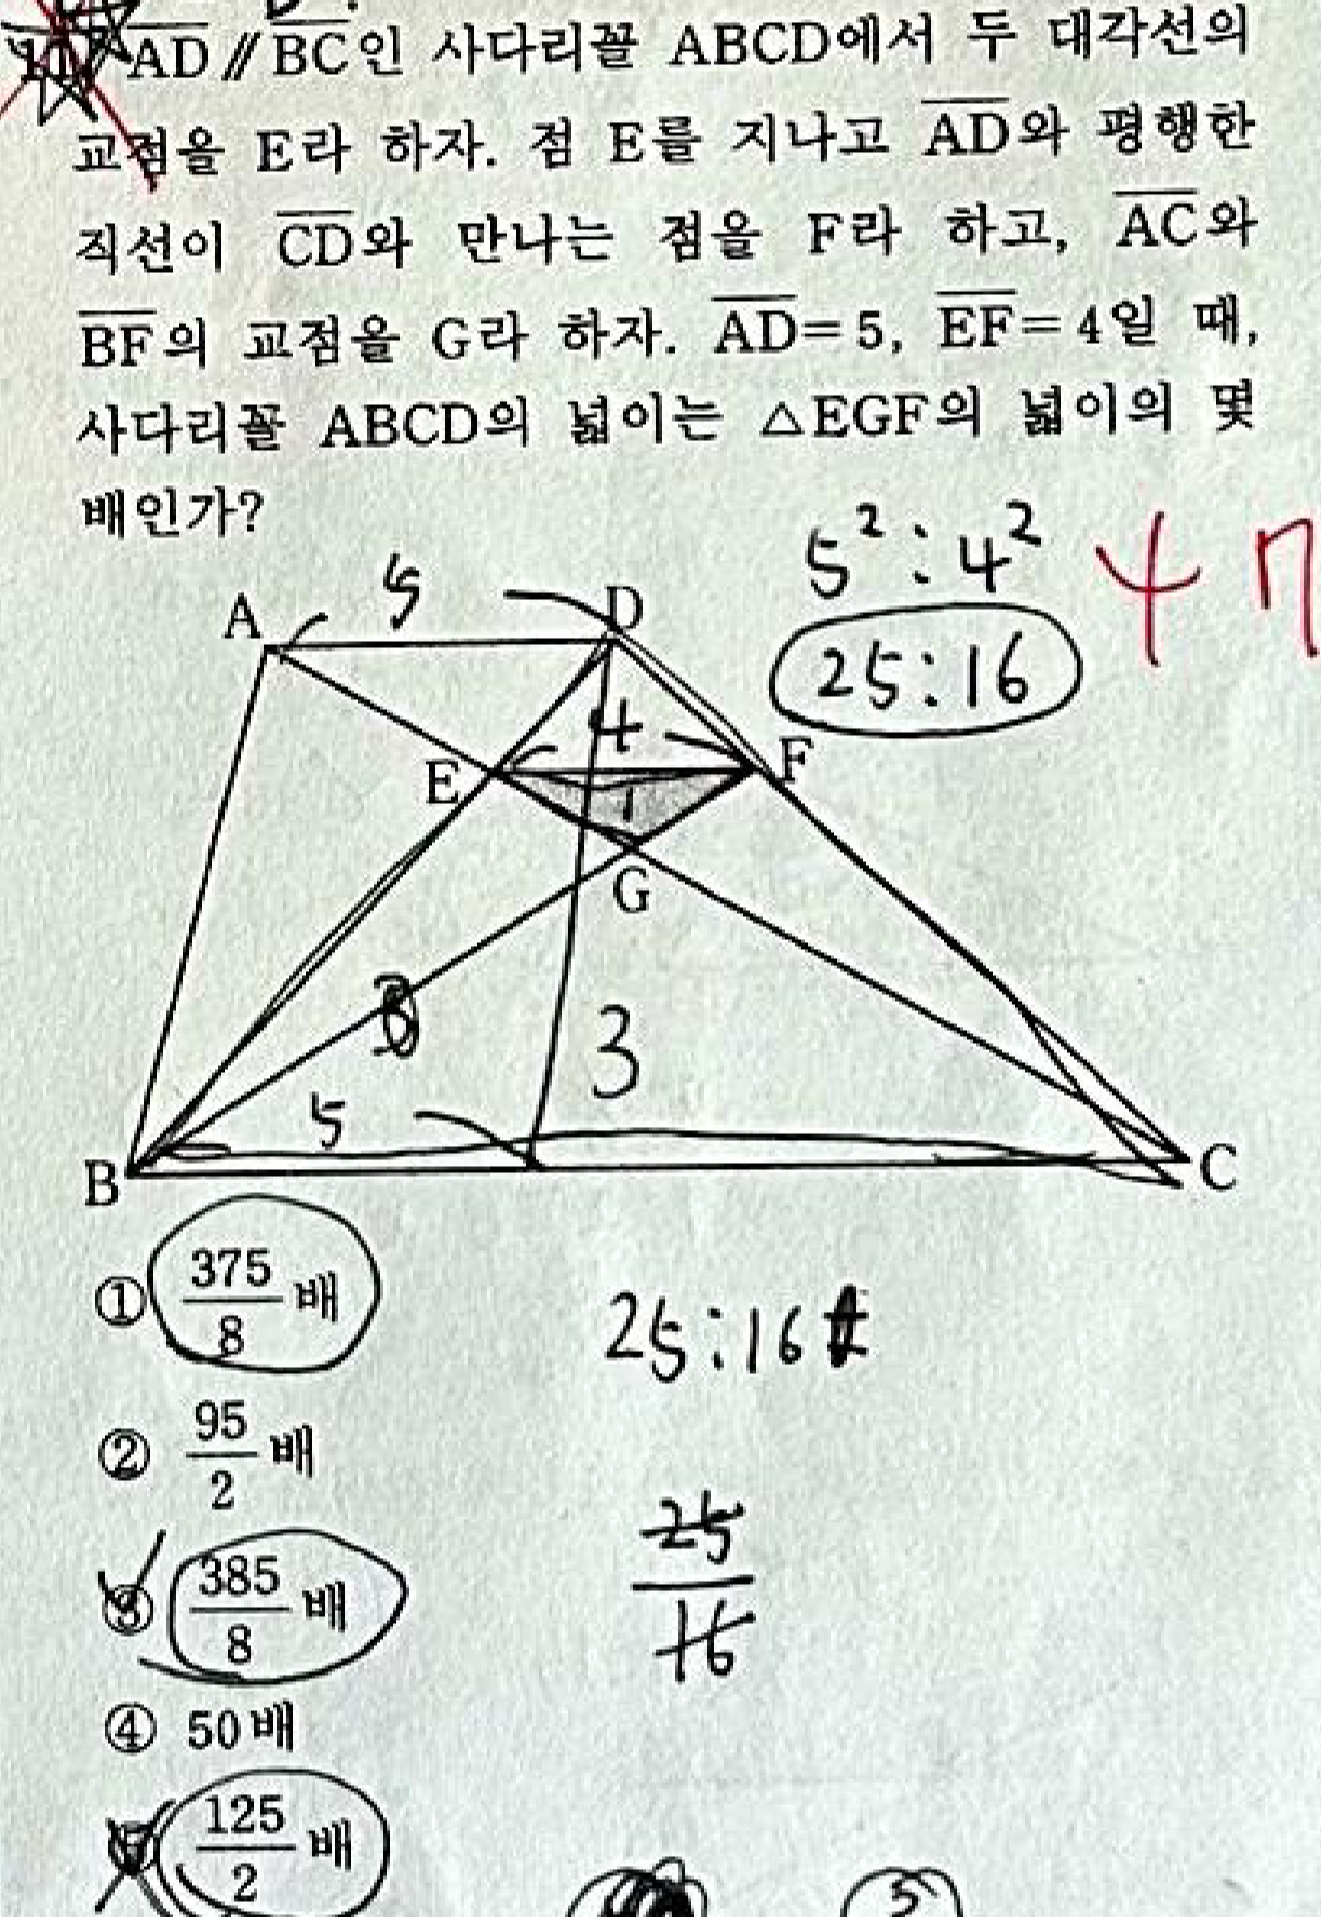 AD // BC인 사다리꼴 ABCD에서 두 대각선의
교점을 E라 하자. 점 E를 지나고 AD와 평행한
직선이 CD와 만나는 점을 F라 하고, AC와
BF의 교점을 G라 하자. AD=5, EF=4일 때,
사다리꼴 ABCD의 넓이는 △EGF의 넓이의 몇
배인가?
5²:4²
25:16
A 5 D
4
E F
1
G
3
5
B C
① 375/8 배
25:16
② 95/2 배
25/16
③ 385/8 배
④ 50배
125/2 배
5